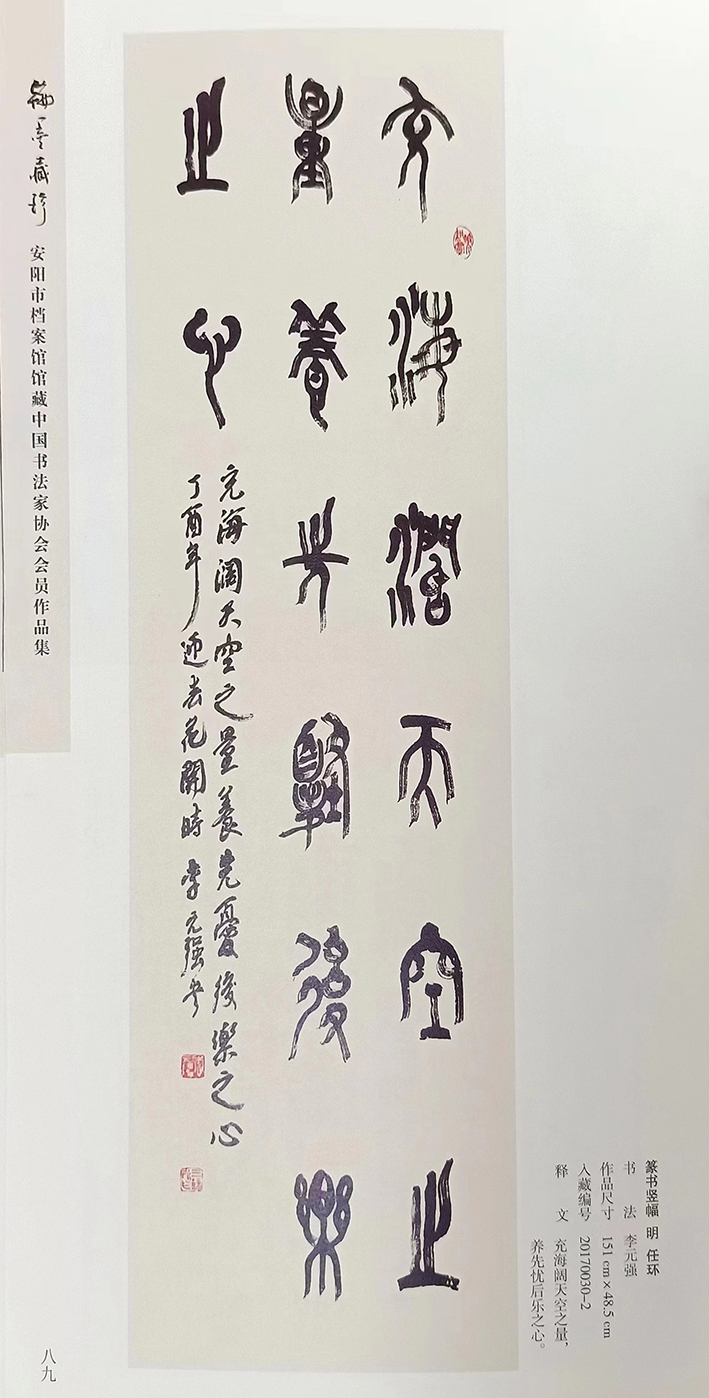 充海濶天空之
量養先憂後樂
之心
充海濶天空之量養先憂後樂之心
丁酉年迎春花開時李元强书
篆书竖幅 明 任环
书 法 李元强
作品尺寸 151 cm × 48.5 cm
入藏编号 20170030-2
释 文 充海阔天空之量，
养先忧后乐之心。
翰墨藏珍 安阳市档案馆馆藏中国书法家协会会员作品集
八九